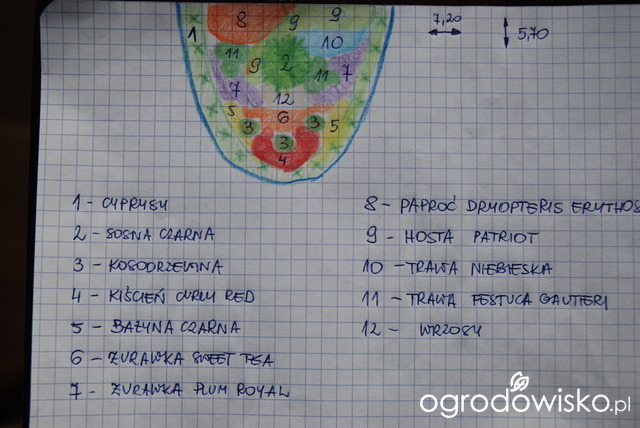 8 9 9
1
10
11 9 2 11 7
7
12
5 6
3 3 5
3
4
7,20
5,70
1 - CYPRYSY
2 - SOSNA CZARNA
3 - KOSODRZEWINA
4 - KIŚCIEŃ CURLY RED
5 - BAŻYNA CZARNA
6 - ŻURAWKA SWEET TEA
7 - ŻURAWKA PLUM ROYAL
8 - PAPROĆ DRYOPTERIS ERYTHOS
9 - HOSTA PATRIOT
10 - TRAWA NIEBIESKA
11 - TRAWA FESTUCA GAUTIERI
12 - WRZOSY
ogrodowisko.pl